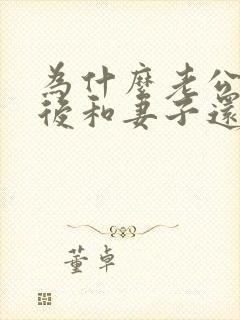 為什麼老公
後和妻子還
董卓